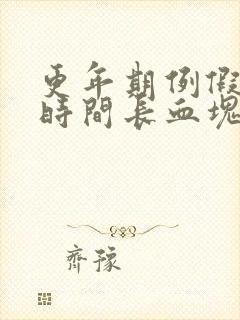 更年期例假
時間長血塊
齊豫